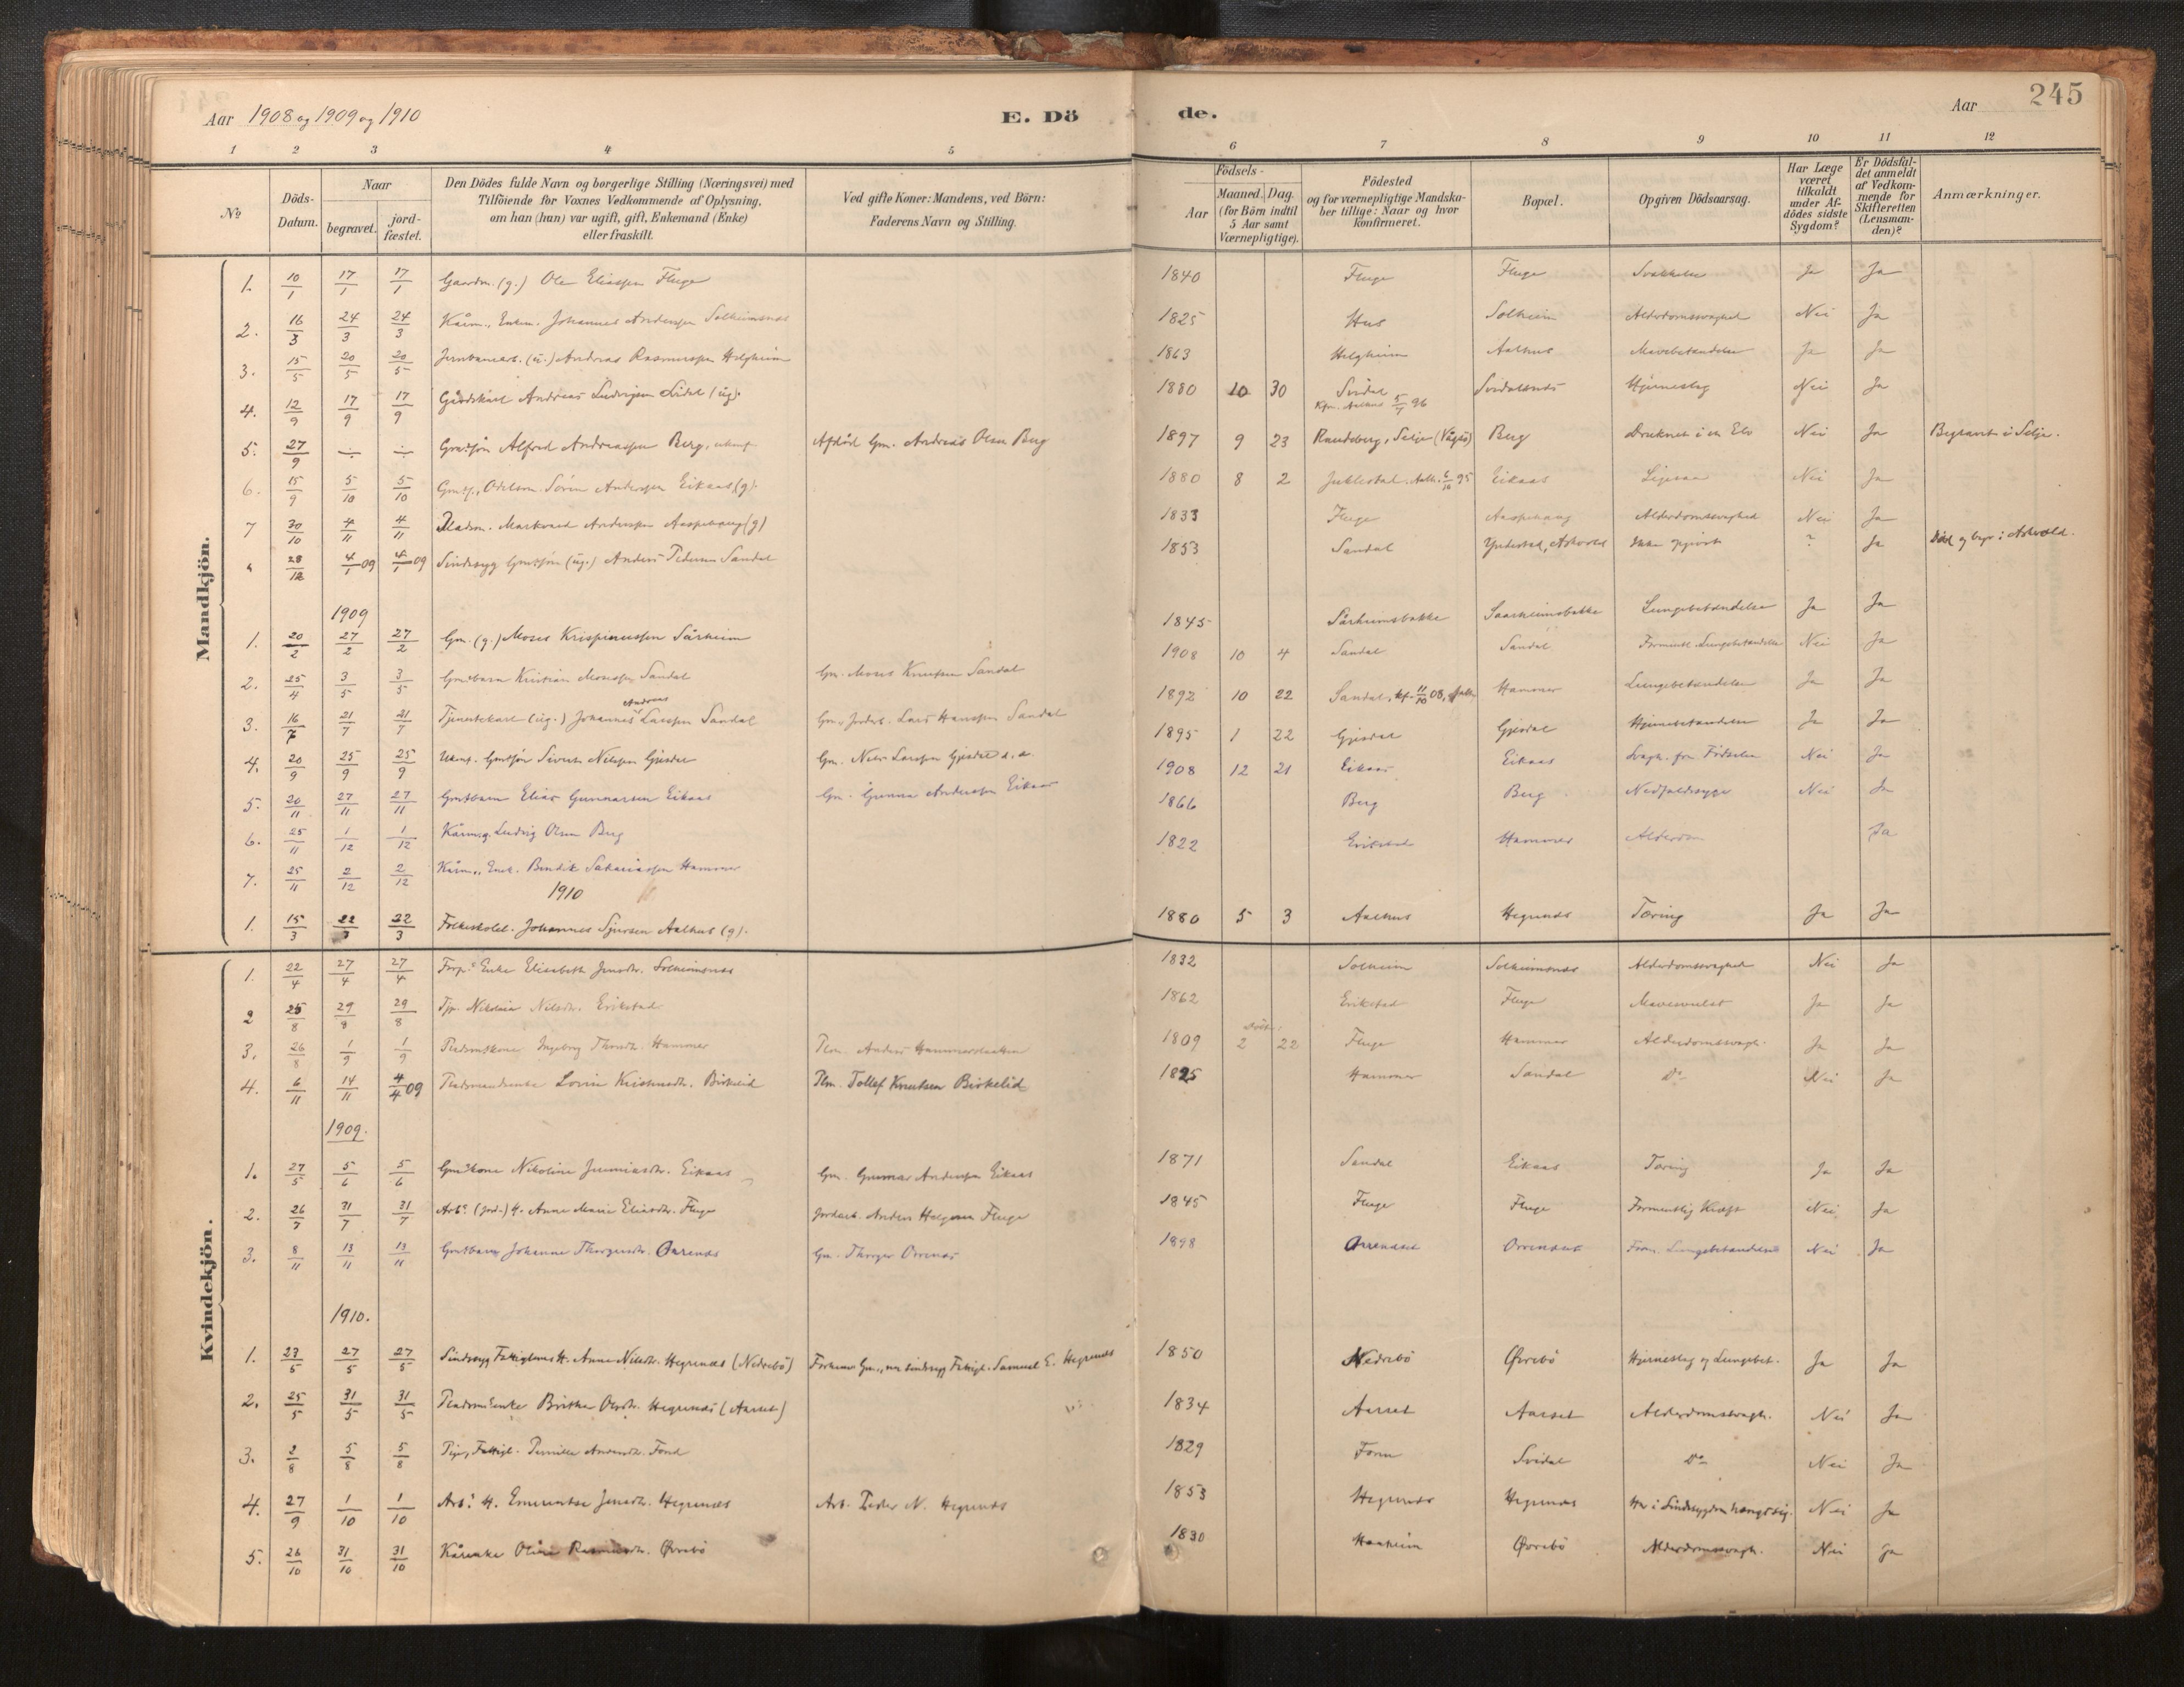 Aar 1908 og 1909 og 1910 E. Dö
de. Aar 245
1 2 3 4 5 6 7 8 9 10 11 12
№ Döds-Datum. Naar begravet. jordfæstet. Den Dödes fulde Navn og borgerlige Stilling (Næringsvei) med Tilföiende for Voxnes Vedkommende af Oplysning, om han (hun) var ugift, gift, Enkemand (Enke) eller fraskilt. Ved gifte Koner: Mandens, ved Börn: Faderens Navn og Stilling. Födsels- Aar Maaned. Dag. (for Börn indtil 5 Aar samt Værnepligtige). Födested og for værnepligtige Mandskaber tillige: Naar og hvor konfirmeret. Bopæl. Opgiven Dödsaarsag. Har Læge været tilkaldt under Afdödes sidste Sygdom? Er Dödsfaldet anmeldt af Vedkommende for Skifteretten (Lensmanden)? Anmærkninger.
Mandkjön.
1. 10/1 17/1 17/1 Gaardm. (g.) Ole Eliassen Fluge 1840 Fluge Fluge Svækkelse Ja Ja
2. 16/3 24/3 24/3 Kårm., Enkem. Johannes Anderssen Solheimsnæs 1825 Hus Solheim Alderdomssvaghed Nei Ja
3. 15/5 20/5 20/5 Jernbanearb. (u.) Andreas Rasmussen Helgheim 1863 Helgheim Aalhus Mavebetændelse Ja Ja
4. 12/9 17/9 17/9 Andreas Ludvigsen (ug). 1880 10 30 5/7 96 Hjerneslag Nei Ja
5. 27/9 ÷ ÷ Alfred Andreassen Berg, Afdöd Gm. Andreas Olsen Berg 1897 9 23 Selje (Vågsö) Berg Druknet i en Elv Nei Ja Begravet i Selje.
6. 15/9 5/10 5/10 Sören Anderssen Eikaas (g). 1880 8 2 6/10 95 Eikaas Ligesaa Nei Ja
7 30/10 4/11 4/11 Pladsm. Markvard Anderssen Aaspehaug (g) 1833 Fluge Aaspehaug Alderdomssvaghed Nei Ja
28/12 4/1 09 4/1 09 Sindssyg Gmssön (ug.) Anders Pedersen Sandal 1853 Sandal Askvold Ikke opgivet ? Ja Död og begr. i Askvold.
1909
1. 20/2 27/2 27/2 Gm. (g.) Moses Krispinussen Sårheim 1845 Sårheimsbakke Saarheimsbakke Lungebetændelse Ja Ja
2. 25/4 3/5 3/5 Gmdbarn Kristian Mosessen Sandal Gm. Moses Knutsen Sandal 1908 10 4 Sandal Sandal Forment. Lungebetændelse Nei Ja
Andreas
3. 16/7 21/7 21/7 Tjenestekarl (ug.) Johannes Larssen Sandal Lars Hanssen Sandal 1892 10 22 Sandal, kf. 11/10 08, Hammer Lungebetændelse Ja Ja
4. 20/9 25/9 25/9 Ukonf. Gmdsön Sivert Nilssen Gjesdal Gm. Nils Larssen Gjesdal 1895 1 22 Gjesdal Gjesdal Hjernebetændelse Ja Ja
5. 20/11 27/11 27/11 Gmdbarn Elias Gunnarsen Eikaas Gm. Gunnar Anderssen Eikaas 1908 12 21 Eikaas Eikaas Svagh. fra Födselen Nei Ja
6. 25/11 1/12 1/12 Kårm. g. Ludvig Olsen Berg 1866 Berg Berg Nedfaldssyge Nei Ja
7. 25/11 2/12 2/12 Kårm., Enk. Bendik Sakariassen Hammer 1822 Erikstad Hammer Alderdom Ja
1910
1. 15/3 22/3 22/3 Folkeskolel. Johannes Sjursen Aalhus (g). 1880 5 3 Aalhus Hegrenæs Tæring Ja Ja
Kvindekjön.
1. 22/4 27/4 27/4 Enke Elisabeth Jensdtr. Solheimsnæs 1832 Solheim Solheimsnæs Alderdomssvaghed Nei Ja
2 25/8 29/8 29/8 Nikolina Nilsdtr. Erikstad 1862 Erikstad Fluge Mavesvulst Ja Ja
3. 26/8 1/9 1/9 Pladsmkone Ingeborg Hammer Plm. Anders Hammerslætten 1809 2 22 Fluge Hammer Alderdomssvagh. Ja Ja
4. 6/11 14/11 4/4 09 Pladsmandsenke Birkelid Plm. Tollef Knutsen Birkelid 1825 Hammer Sandal Do Nei Ja
1909.
1. 27/5 5/6 5/6 Gmskone Nikoline Jeremiasdtr. Eikaas Gm. Gunnar Anderssen Eikaas 1871 Sandal Eikaas Tæring Ja Ja
2. 26/7 31/7 31/7 Anne Marie Eliasdtr. Fluge Jordarb. Anders Helgesen Fluge 1845 Fluge Fluge Formentlig Kræft Nei Ja
3. 8/11 13/11 13/11 Gmdbarn Johanne Thorgersdtr. Orrenæs Gm. Thorger Orrenæs 1898 Orrenæset Orrenæset Form. Lungebetændelse Nei Ja
1910.
1. 23/5 27/5 27/5 Sindssyg Fattiglems H. Anne Nilsdtr. Hegrenæs (Nedrebö) Forhenv. Gm., nu sindssyg Fattigl. Samuel E. Hegrenæs 1850 Nedrebö Øvrebö Hjerneslag og Lungebet. Ja Ja
2. 25/5 31/5 31/5 Pladsm.Enke Brithe Olsdtr. Hegrenæs (Aarset) 1834 Aarset Aarset Alderdomssvagh. Nei Ja
3. 2/8 5/8 5/8 Pige, Fattigl. Pernille Fond 1829 Svidal Do Nei Ja
4. 27/9 1/10 1/10 Arb. H. Emerentse Jensdtr. Hegrenæs Arb. Peder N. Hegrenæs 1853 Hegrenæs Hegrenæs Har i Sindssygdom hængt sig. Nei Ja
5. 26/10 31/10 31/10 Kårenke Oline Rasmusdtr. Øvrebö 1830 Øvrebö Alderdomssvagh. Nei Ja